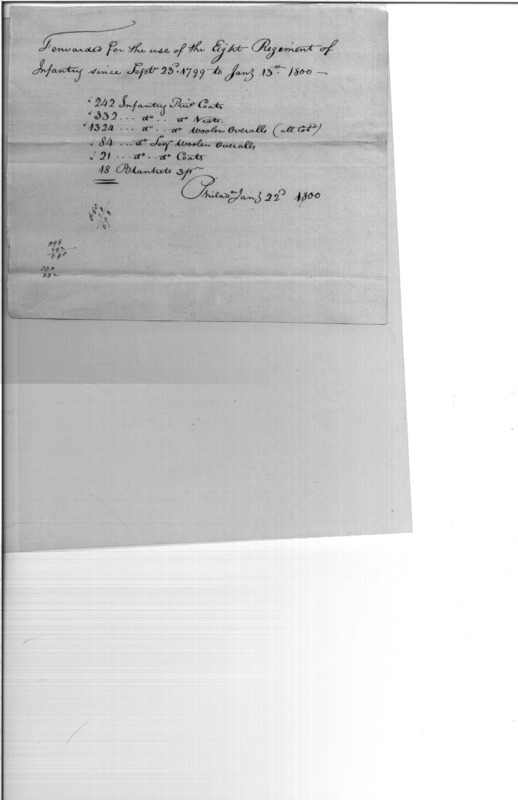 Forwarded for the use of the Eight Regiment of
Infantry since Sept 23d. 1799 to Jany 13th. 1800 —
242 Infantry Privs Coats
332 ... do ... do Vests.
1324 ... do .. do Woolen Overalls (all Cold)
84 ... do Serjt Woolen Overalls
21 ... do .. do Coats
18 Blankets 3pt
Philada. Jany 22d 1800